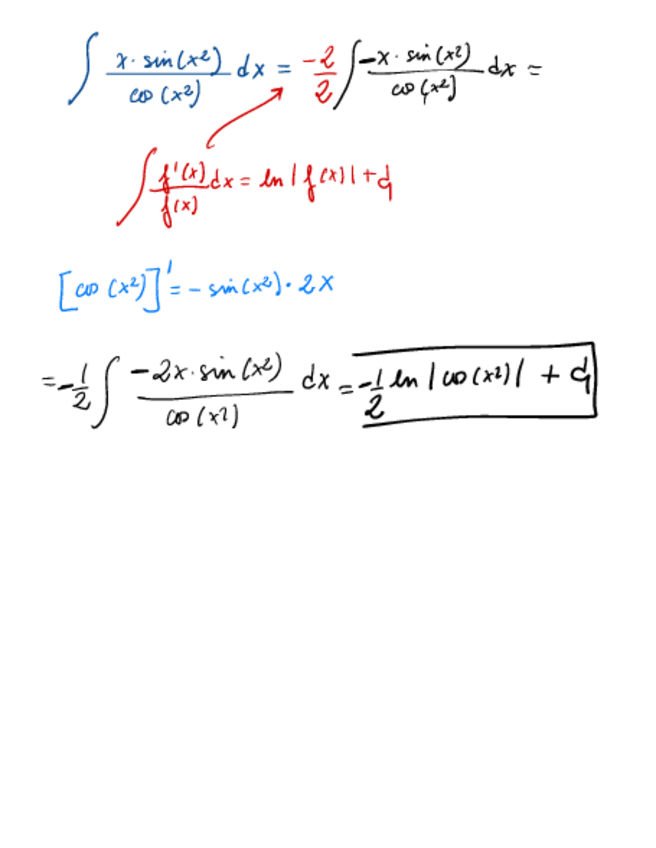 ∫ x · sin(x²) / cos(x²) dx = -2/2 ∫ -x · sin(x²) / cos(x²) dx =
∫ f'(x) / f(x) dx = ln |f(x)| + C₁
[cos (x²)]' = - sin(x²) · 2x
= -1/2 ∫ -2x · sin(x²) / cos(x²) dx = -1/2 ln |cos(x²)| + C₁